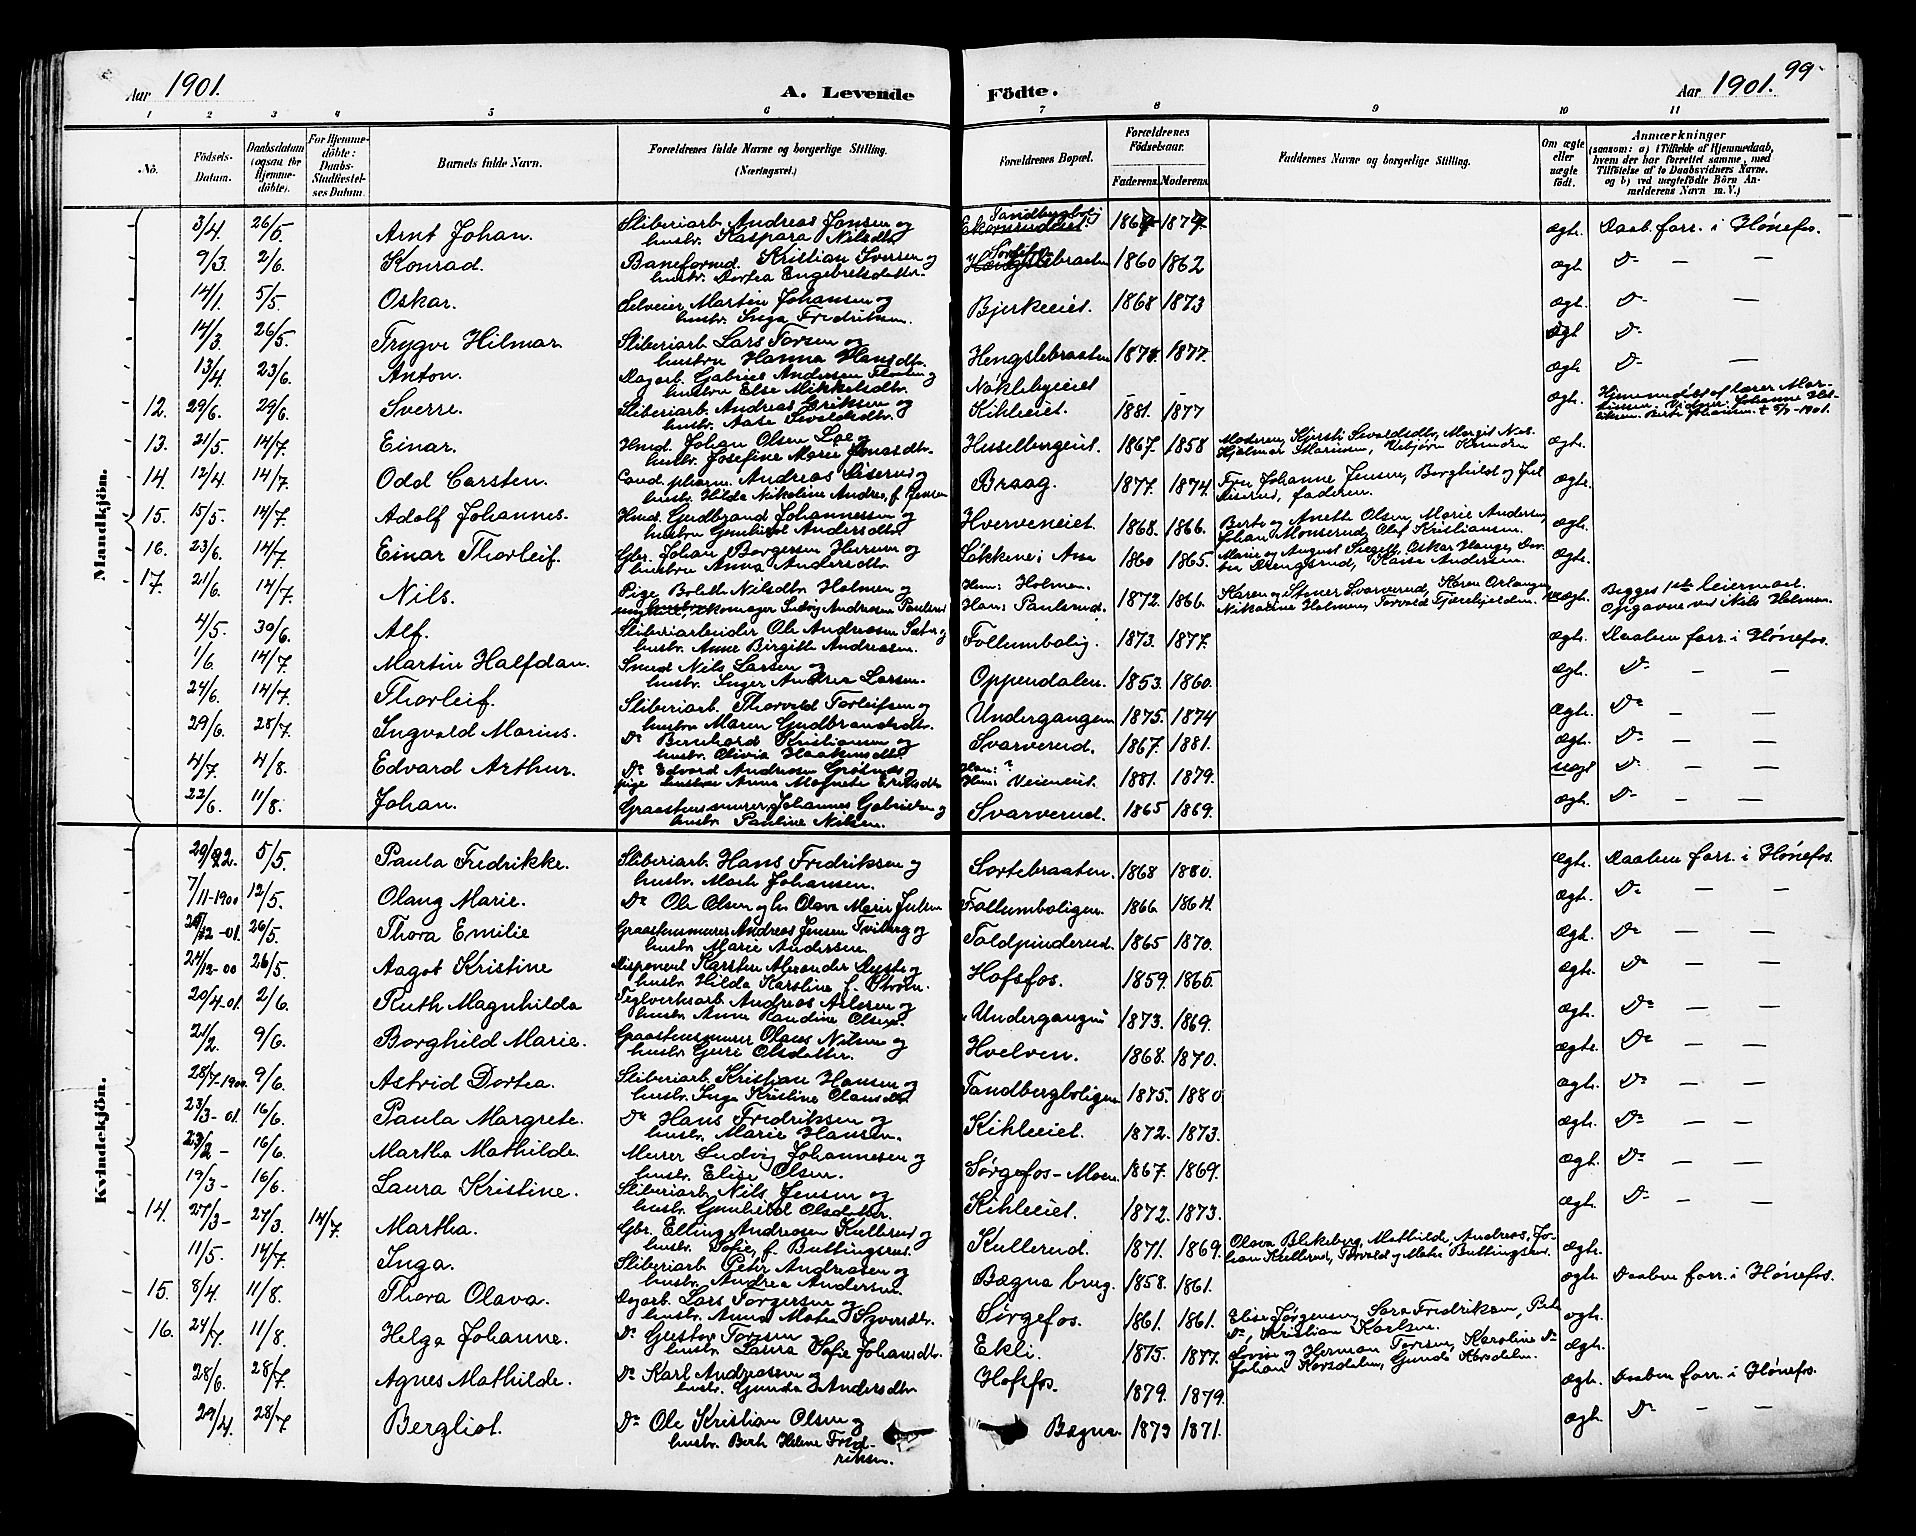 Aar 1901.
A. Levende
Födte.
Aar 1901. 99
1 2 3 4 5 6 7 8 9 10 11
No.
Födsels-Datum.
Daabsdatum (ogsaa for Hjemmedöbte).
For Hjemmedöbte: Daabs-Stadfæstelses Datum.
Barnets fulde Navn.
Forældrenes fulde Navne og borgerlige Stilling. (Næringsvei.)
Forældrenes Bopæl.
Forældrenes Födselsaar. Faderens. Moderens.
Faddernes Navne og borgerlige Stilling.
Om ægte eller uægte födt.
Anmærkninger (saasom: a) i Tilfælde af Hjemmedaab, hvem der har forrettet samme, med Tilföielse af to Daabsvidners Navne, og b) ved uægtefödte Börn Anmelderens Navn m. V.)
Mandkjön.
3/4 26/5 Arnt Johan. Sliberiarb. Andreas Jensen og hustr. Kaspara Nilsdtr. ægte. Daab. forr. i Hønefos.
9/3 2/6 Konrad. Baneformd. Kristian Iversen og hustr. Dortea Engebretsdatter. 1860 1862 ægte D° — —
14/1 5/5 Oskar. Selveier Martin Johansen og hustr. Inga Fredriksen. Bjerkeeiet. 1868 1873 ægte. D° —
14/3 26/5 Trygve Hilmar Sliberiarb. Lars Torsen og hustru Hanna Hansdtr. Hengslebraaten 1877. ægt D°
13/4 23/6 Anton. Dagarb. Gabriel Andersen og hustru Else Mikkelsdtr. Nøklebyeiet — — ægte. D° —
12. 29/6. 29/6. Sverre. Sliberiarb. Andreas Eriksen og hustr. Aase Sivaldsdtr. Kihleeiet. 1881. 1877 ægte. Hjemmedøbt af lærer † 5/7-1901.
13. 21/5. 14/7. Einar. Hmd. Johan Olsen Løe og hustr. Josefine Marie Jonasdtr. Hesselbergeiet. 1867. 1858 Moderen, Kjersti Sivaldsdtr, Margit Nils. ægte.
14. 12/4 14/7. Odd Carsten. Cand. pharm. Andreas og hustr. Hilda Nikoline Andrea, f. Jensen Braag. 1877. 1874. Fru Johanne Jensen, Borghild og faderen. ægte.
15. 15/5. 14/7 Adolf Johannes. Hmd. Gudbrand Johannessen og hustru Gunhild Andersdtr. Hverveneiet. 1868. 1866. Berte og Anette Olsen, Marie Andersen, Johan Monserud, Olaf Kristiansen. ægte.
16. 23/6 14/7 Einar Thorleif. Gbr. Johan Borgersen og hustru Anna Andersdtr. Løkkene i Aas 1860 1865. Marie og August Oskar Hansen Andersen. ægte.
17. 21/6. 14/7. Nils. Pige Bolette Nilsdtr. Holmen og skomager Ludvig Andreasen Paulerud Hun: Holmen. Han: Paulerud. 1872. 1866. Karen og Stener Svarverud, Nikoline Holmen, uægte. Begges 1ste leiermaal. Opgavne ved Nils Holmen.
4/5. 30/6. Alf. Sliberiarbeider Ole Andreasen og hustr. Anne Birgitte Andreasen. Follumbolig. 1873. 1877. ægte. Daaben forr. i Hønefos.
1/6. 14/7 Martin Halfdan. Smed Nils Larsen og hustr. Inger Andrea Larsen. Oppendalen. 1853. 1860. ægte. D° — —
24/6. 14/7. Thorleif. Sliberiarb. Thorvald Torleifsen og hustr. Maren Gudbrandsdtr. Undergangen 1875. 1874 ægte. D°
29/6. 28/7. Ingvald Marius. D° Bernhard Kristiansen og hustr. Olivia Haakonsdtr. Svarverud. 1867. 1881. ægte. D° — —
4/7 4/8. Edvard Arthur. D° Edvard Andreasen og pige Anna Magnete Eriksdtr Han: ? Hun: Veieneiet. 1881. 1879. uægt D° — —
22/6. 11/8. Johan. Graastensmurer, Johannes Gabrielsen og hustr. Pauline Nilsen. Svarverud. 1865 1869. ægte. D° — —
Kvindekjön.
5/5. Paula Fredrikke. Sliberiarb. Hans Fredriksen og hustr. Johansen. Sortebraaten. 1868 1880. ægte. Daaben forr. i Hønefos.
7/11-1900 12/5. Olaug Marie. D° Ole Olsen og hu Olava Marie Follumboligen. 1866. 1864. ægte. D° — —
26/5. Thora Emilie Graastensmurer Andreas Jensen Tviberg og hustr. Marie Andersen. Toldpinderud. 1865 1870. ægte. D° — —
24/12-00 26/5. Aagot Kristine Disponent Karsten Alexander og hustr. Hilda Karoline f. Strøm. Hofsfos. 1859. 1865. ægte. D° — —
20/4-01. 2/6. Ruth Magnhilda Teglverksarb. Andreas og hustr. Anne Randine Olsen. Undergangen 1873. 1869. ægte. D° — —
21/2. 9/6. Borghild Marie. Graastensmurer Olaus Nilsen og hustr. Olsdatter. Hvelven. 1868. 1870. ægte. D° — —
28/7-1900. 9/6. Astrid Dortea. Sliberiarb. Kristian Hansen og hustr. Inga Kristine Olausdtr Tandbergboligen 1875. 1880. ægte. D° — —
23/3-01. 16/6. Paula Margrete. D° Hans Fredriksen og hustr. Marie Hansen. Kihleeiet. 1872. 1873. ægte. D° — —
23/2 - 16/6. Martha Mathilde. Murer Ludvig Johannesen og hustr. Elise Olsen. Sørgefos-Moen 1867. 1869. ægte. D° — —
19/3 - 16/6. Laura Kristine. Sliberiarb. Nils Jensen og hustr. Gunhild Olsdatter. Kihleeiet. 1872. 1873. ægte. D° — —
14. 27/3 - 27/3. 14/7. Martha. Gbr. Elling Andreasen Kullerud og hustr. Sofie, f. Buttingsrud. Kullerud. 1871. 1869. Olava Blekeberg, Mathilde, Andreas, Johan Kullerud, Torvald og Buttingsrud. ægte.
11/5. 14/7. Inga. Sliberiarb. Peter Andreasen og hustr. Andrea Andersen. Bægna brug. 1858. 1861. ægte. Daaben forr. i Hønefos.
15. 8/4. 11/8. Thora Olava. Dagarb. Lars Torgersen og hustr. Anna Syversdtr. Sørgefos. 1861. 1861. Elise Jørgensen, Sara Fredriksen, D° Kristian Karlsen. ægte.
16. 24/7. 11/8. Helga Johanne. D° Gustav Torsen hustr. Laura Sofie Johansdtr. Ekli. 1875. 1877. Lovise og Herman Torsen, Karoline D° Johan Korsdalen, Gunda Korsdalen. ægte.
28/6. 28/7. Agnes Mathilde. D° Karl Andreasen og hustr. Gunda Andersdtr Hofsfos. 1879. 1879. ægte. Daaben forr. i Hønefos.
29/4. 28/7 Bergliot. D° Ole Kristian Olsen og hustr. Berte Helene Fredriksen. Bægna. 1873 1871. ægte. D° — —